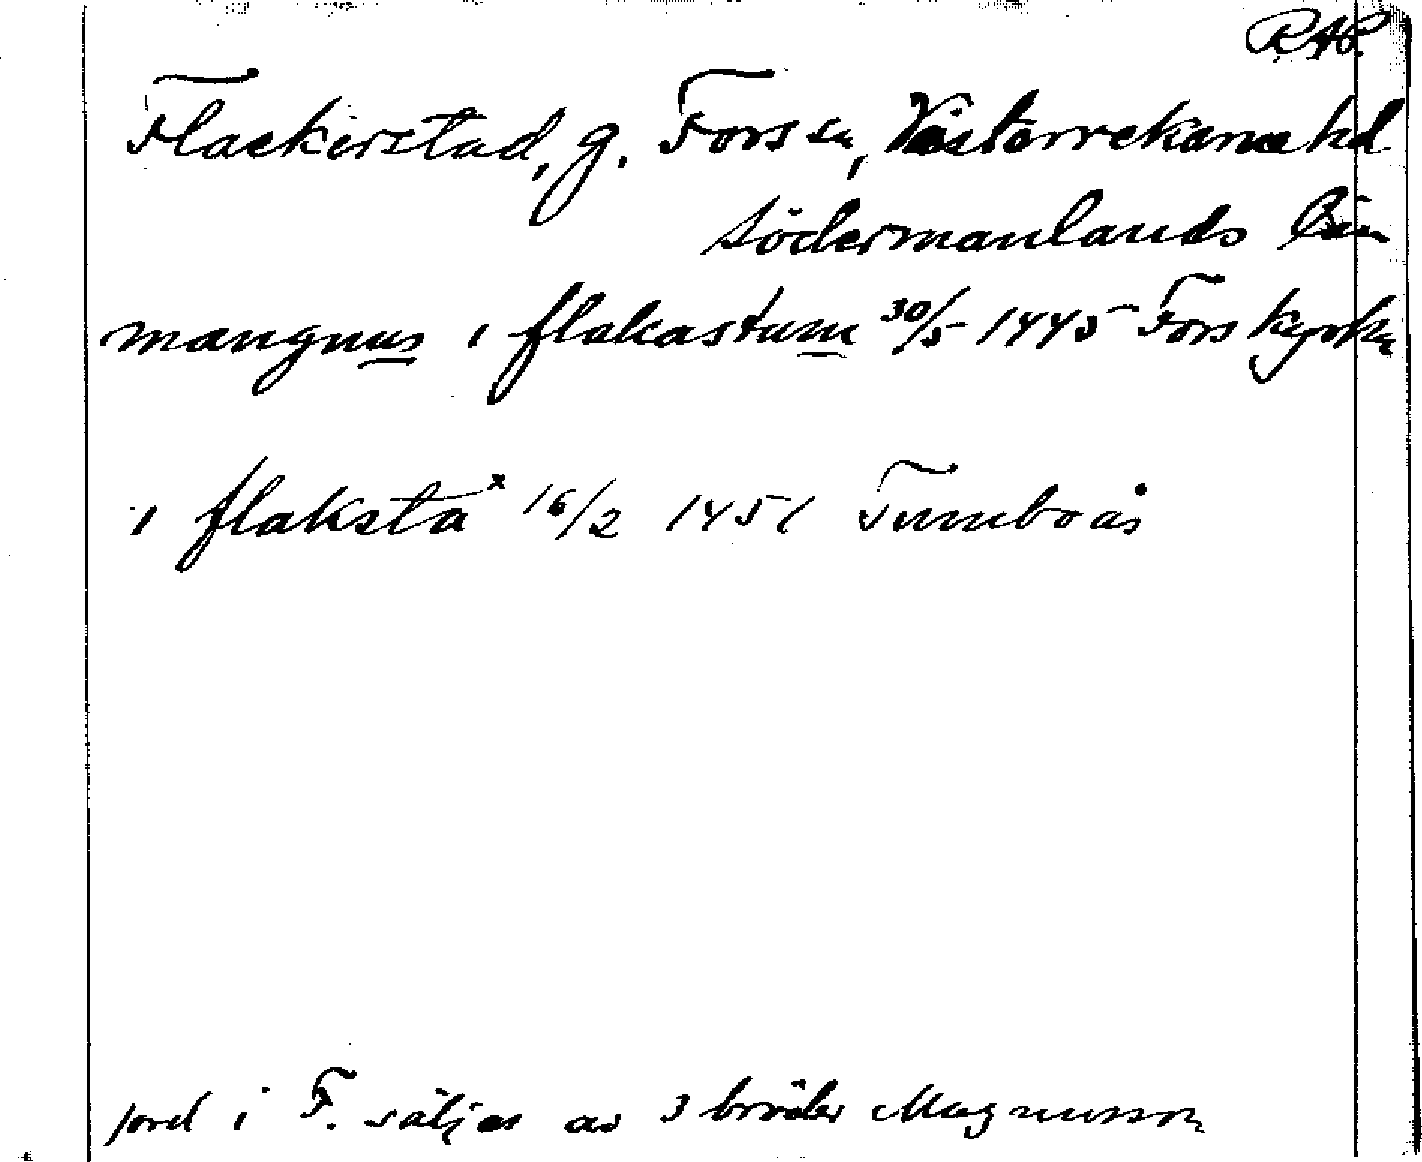 RAP.
Flackerstad, g. Fors sn, Västerrekarne hd
Södermanlands län
mangnus i flakastum 30/5 1445 Fors kyrka
i flaksta x 16/2 1451 Tumboås
jord i F. säljes av 3 bröder Magnusson